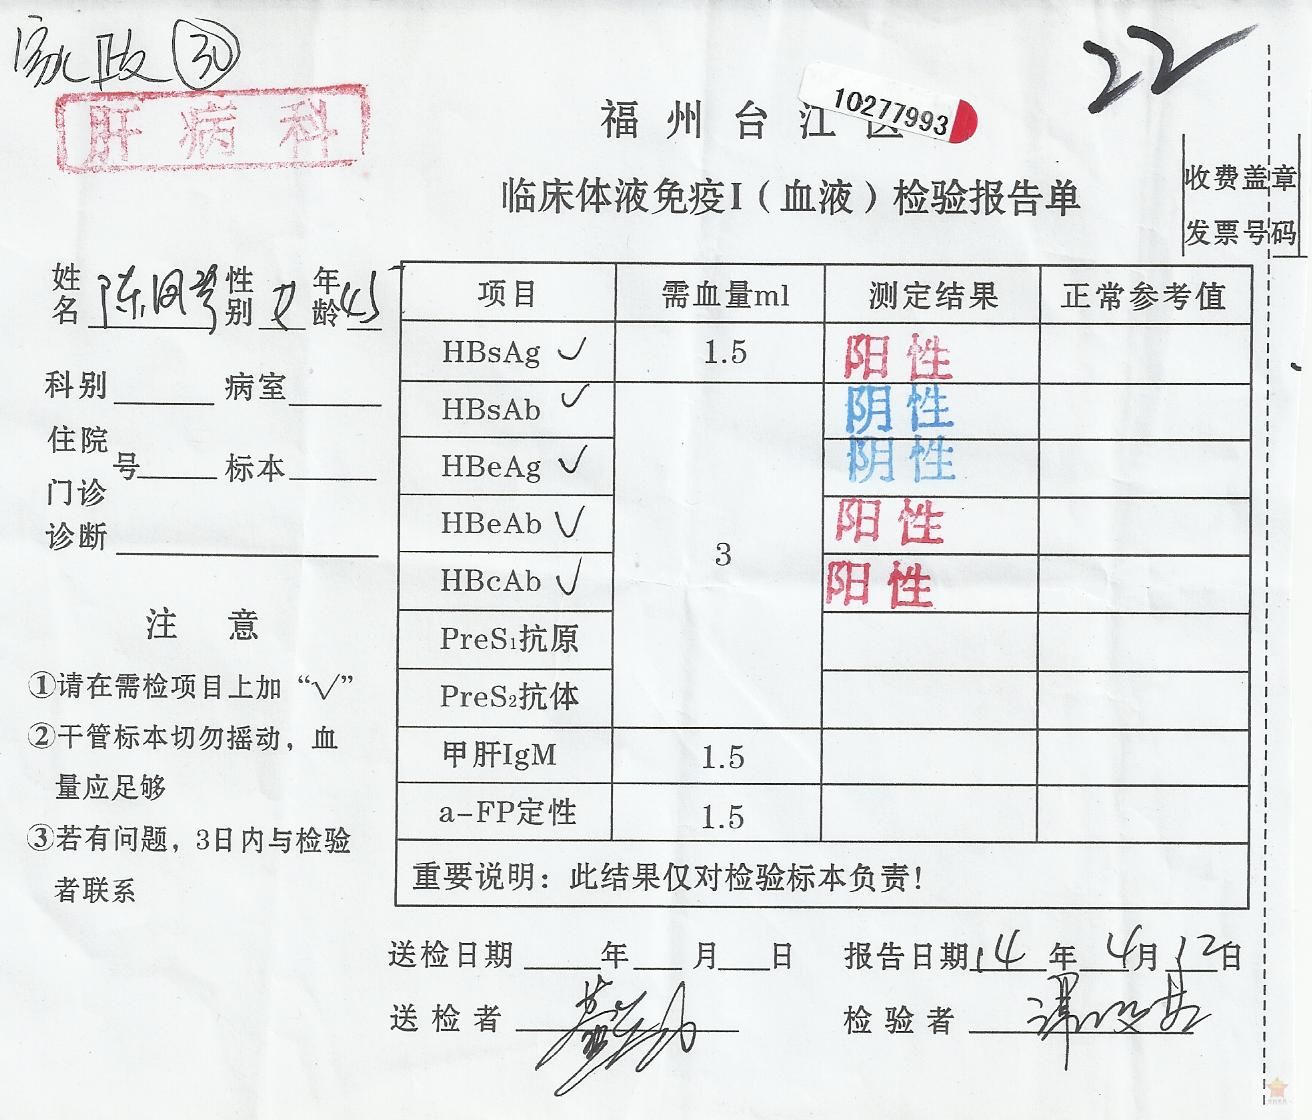 家政 30
22
肝病科
10277993
福州台江区
临床体液免疫I（血液）检验报告单
收费盖章
发票号码
姓名 陈 性别 女 年龄 45
科别 病室
住院
门诊
号 标本
诊断
注意
①请在需检项目上加“√”
②干管标本切勿摇动，血
量应足够
③若有问题，3日内与检验
者联系
项目 需血量ml 测定结果 正常参考值
HBsAg ✓ 1.5 阳性
HBsAb ✓ 阴性
HBeAg ✓ 阴性
HBeAb ✓ 3 阳性
HBcAb ✓ 阳性
PreS₁抗原
PreS₂抗体
甲肝IgM 1.5
a-FP定性 1.5
重要说明：此结果仅对检验标本负责！
送检日期 年 月 日 报告日期 14 年 4 月 12 日
送检者 检验者